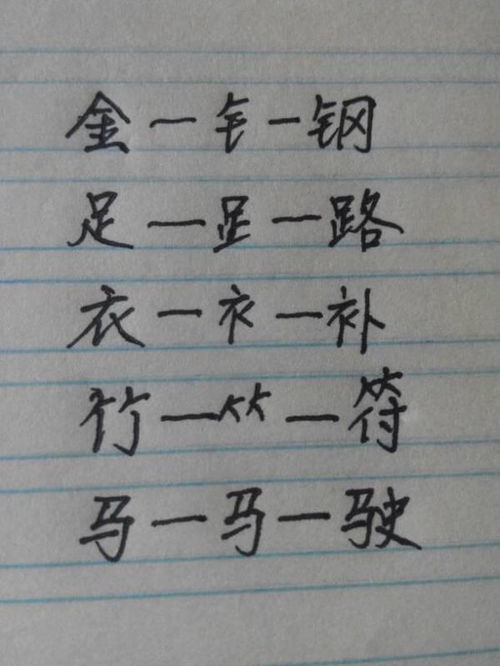 金一钅一钢
足一𧾷一路
衣一衤一补
竹一⺮一符
马一马一驶